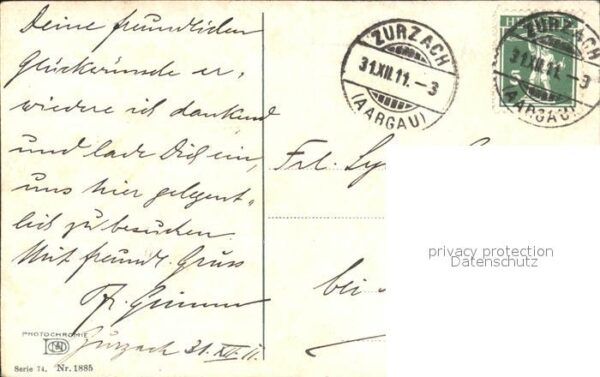 Deine freundlichen
Glückwünsche er-
wiedere ich dankend
und lade Dich ein,
uns hier gelegent-
lich zu besuchen.
Mit freundl. Gruss
Zurzach 31. XII. 11.
PHOTOCHROMIE
Serie 74. Nr. 1885
ZURZACH
31.XII.11. – 3
(AARGAU)
5
ZURZACH
31.XII.11. – 3
(AARGAU)
Frl.
bei
privacy protection
Datenschutz